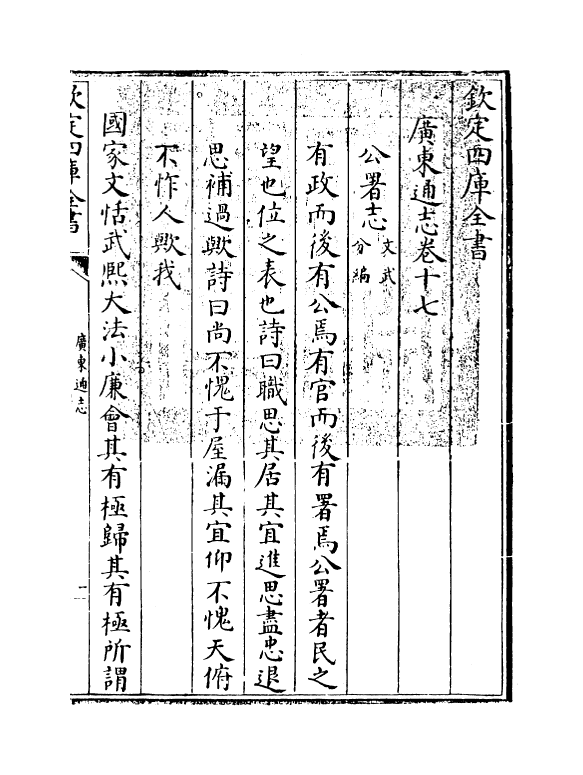 欽定四庫全書
廣東通志卷十七
公署志文武分編
有政而後有公焉有官而後有署焉公署者民之
望也位之表也詩曰職思其居其宜進思盡忠退
思補過歟詩曰尚不愧于屋漏其宜仰不愧天俯
不怍人歟我
國家文恬武熙大法小廉會其有極歸其有極所謂
欽定四庫全書
廣東通志
一